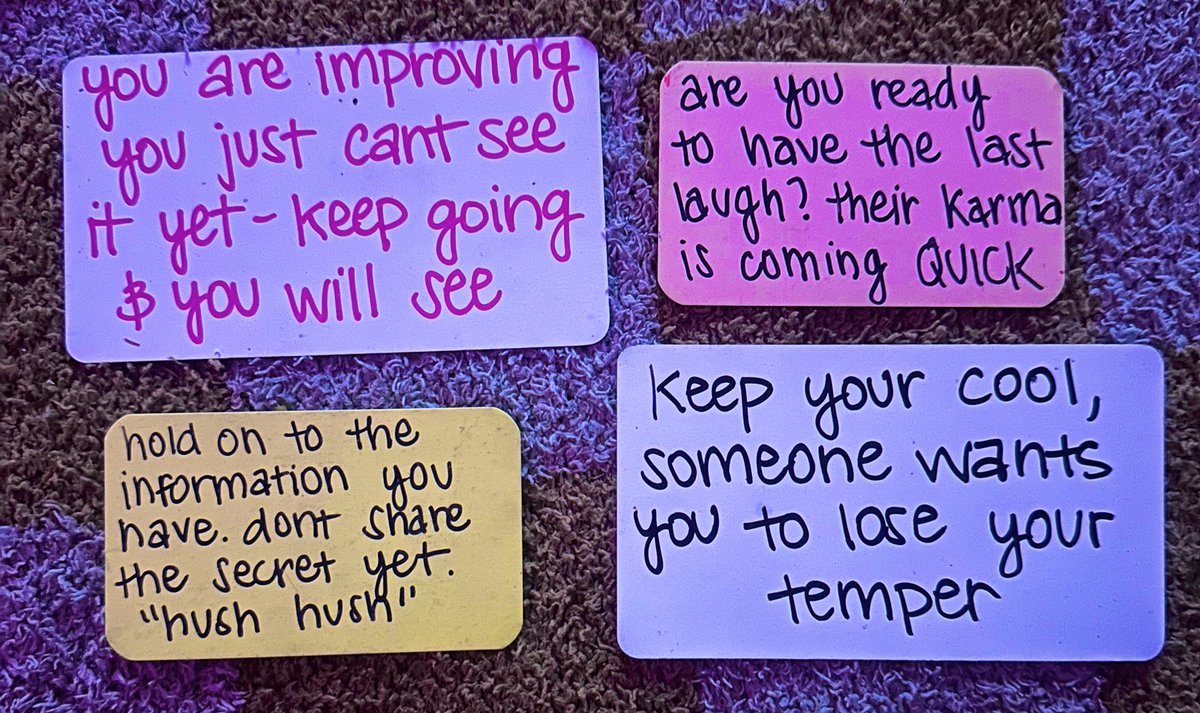 you are improving
you just cant see
it yet - keep going
& you will see
are you ready
to have the last
laugh? their karma
is coming QUICK
hold on to the
information you
have. dont share
the secret yet.
"hush hush"
keep your cool,
someone wants
you to lose your
temper